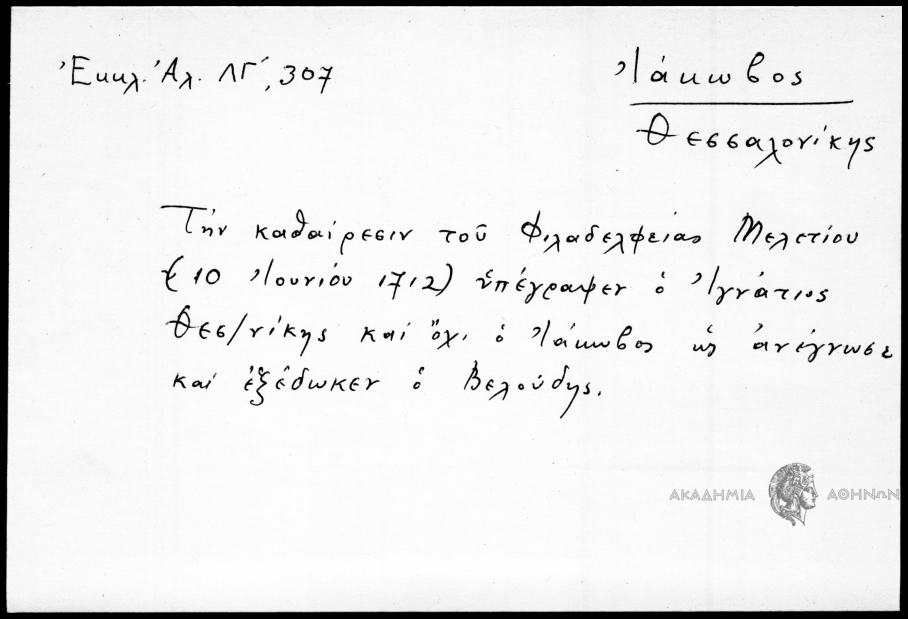 Ἐκκλ. Ἀλ. ΛΓ΄, 307
Ἰάκωβος
Θεσσαλονίκης
Τὴν καθαίρεσιν τοῦ Φιλαδελφείας Μελετίου
(10 Ἰουνίου 1712) ὑπέγραψεν ὁ Ἰγνάτιος
Θεσ/νίκης καὶ ὄχι ὁ Ἰάκωβος ὡς ἀνέγνωσε
καὶ ἐξέδωκεν ὁ Βελούδης.
ΑΚΑΔΗΜΙΑ ΑΘΗΝΩΝ